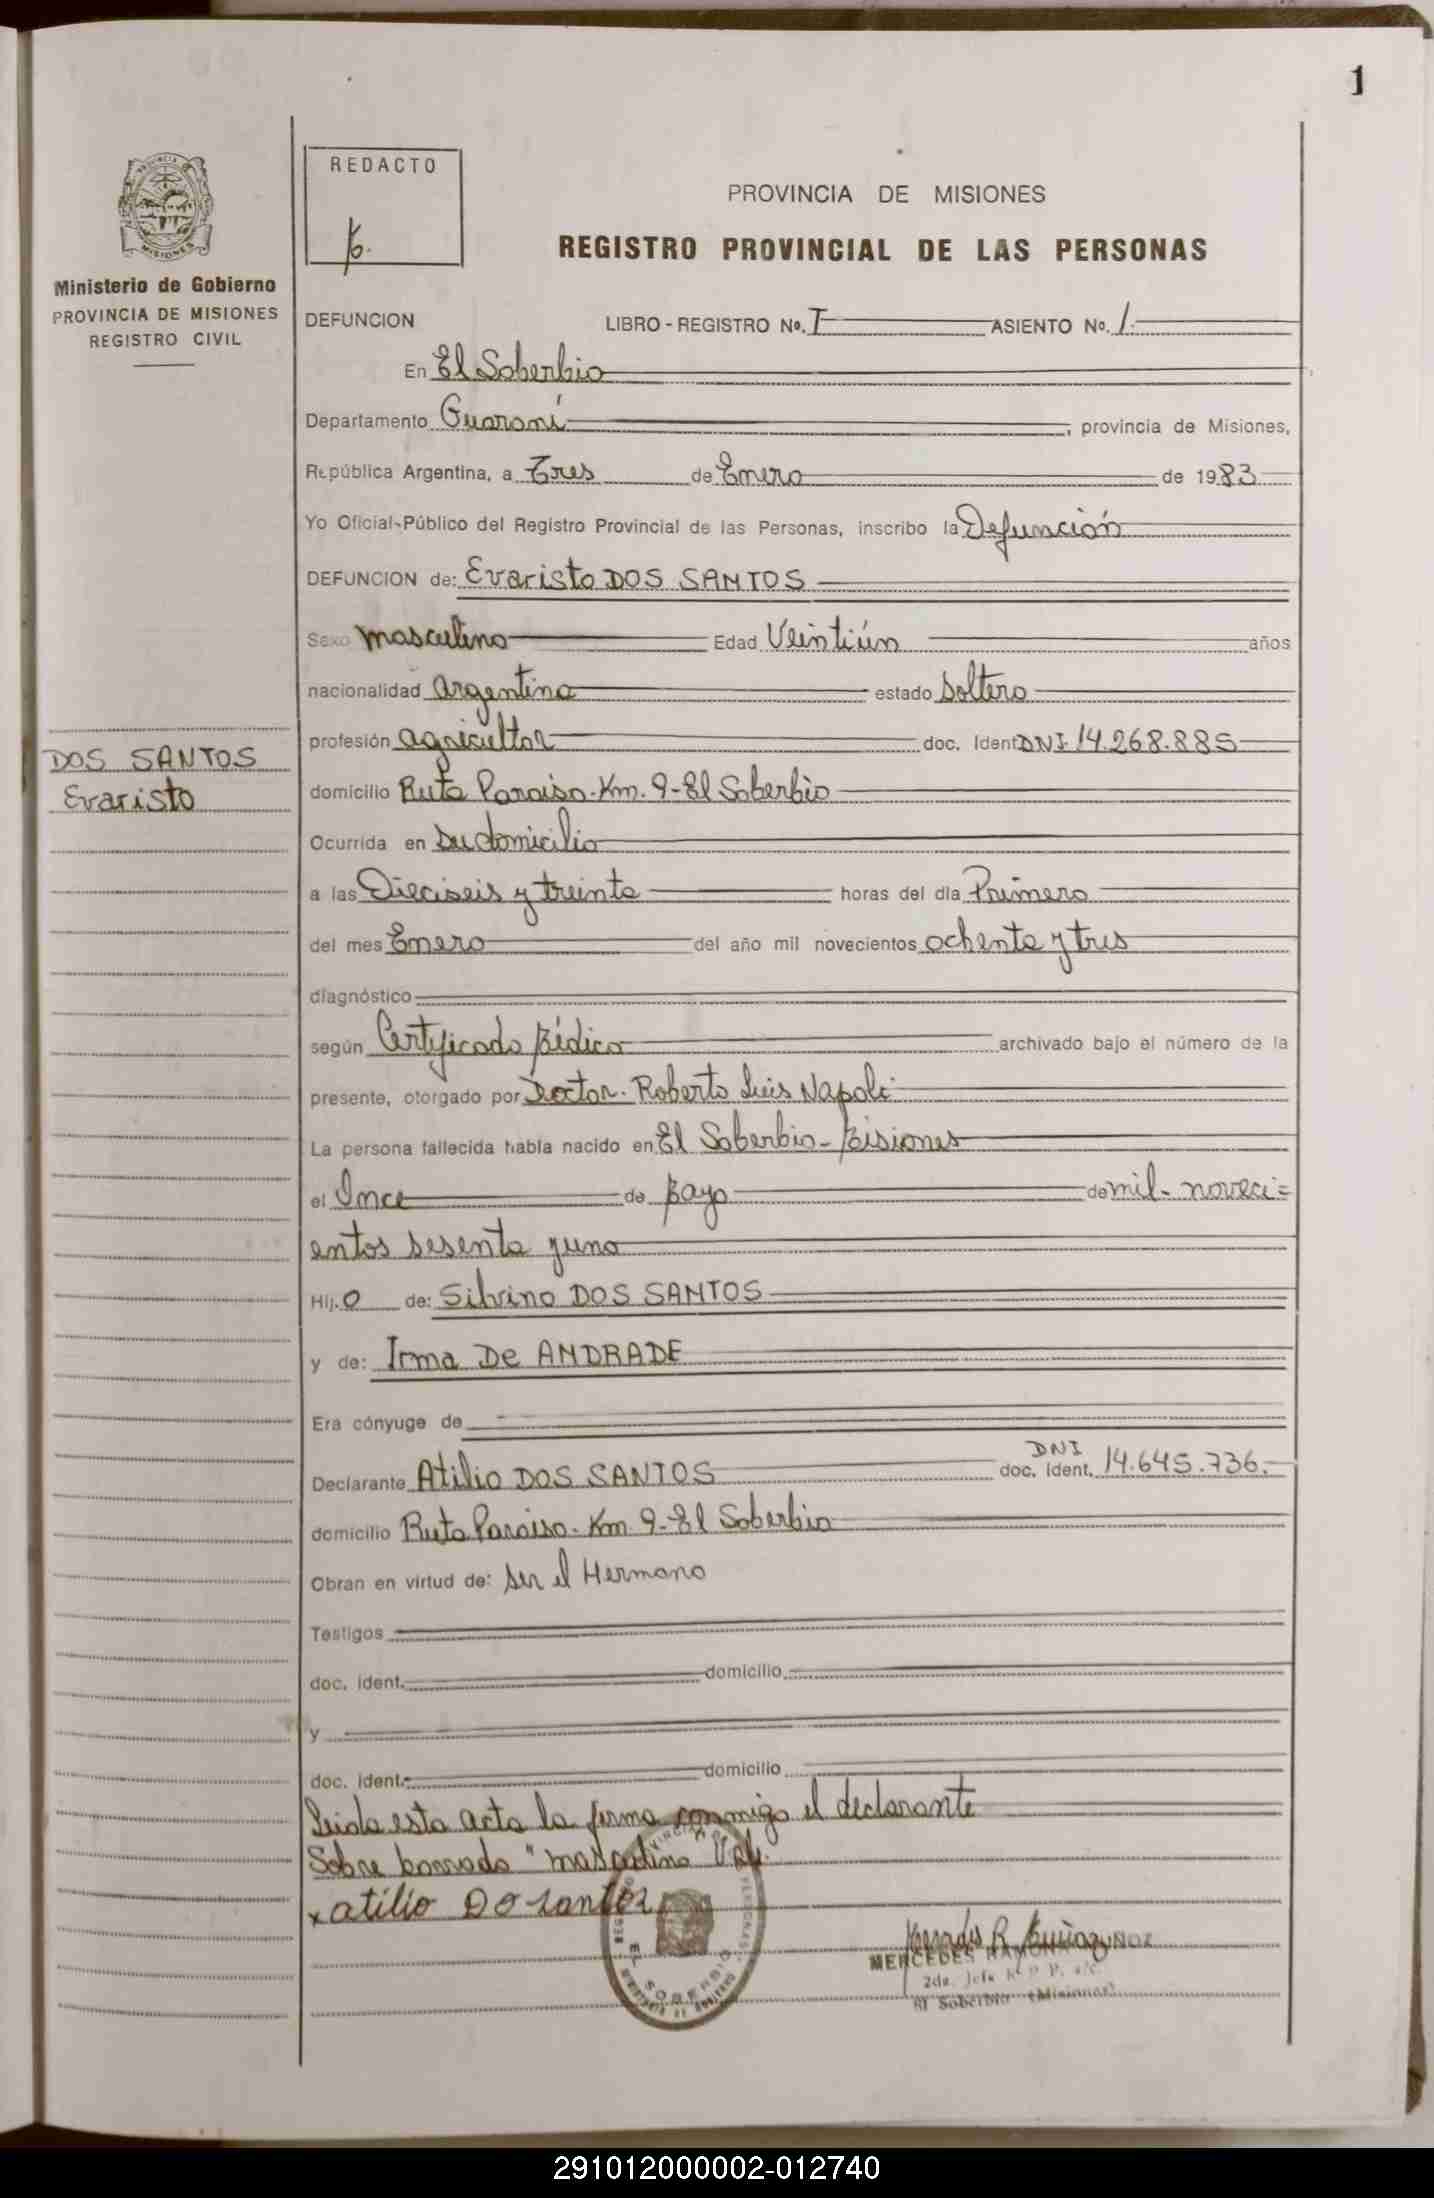 1
REDACTO
PROVINCIA DE MISIONES
REGISTRO PROVINCIAL DE LAS PERSONAS
Ministerio de Gobierno
PROVINCIA DE MISIONES
REGISTRO CIVIL
DEFUNCION LIBRO - REGISTRO No. I ASIENTO No. 1.
En El Soberbio
Departamento Guaraní, provincia de Misiones,
República Argentina, a Tres de Enero de 1983
Yo Oficial-Público del Registro Provincial de las Personas, inscribo la Defunción
DEFUNCION de: Evaristo DOS SANTOS
Sexo masculino Edad Veintiún años
nacionalidad argentina estado soltero
profesión agricultor doc. Ident DNI 14.268.885
DOS SANTOS
Evaristo
domicilio Ruta Paraiso-Km. 9-El Soberbio
Ocurrida en su domicilio
a las Dieciseis y treinta horas del día Primero
del mes Enero del año mil novecientos ochenta y tres
diagnóstico
según Certificado Médico archivado bajo el número de la
presente, otorgado por Doctor. Roberto Luis Napoli
La persona fallecida había nacido en El Soberbio-Misiones
el Once de Mayo de mil-noveci=
entos sesenta y uno
Hij.o de: Silvino DOS SANTOS
y de: Irma De ANDRADE
Era cónyuge de
Declarante Atilio DOS SANTOS doc. ident. DNI 14.645.736.
domicilio Ruta Paraiso-Km. 9-El Soberbio
Obran en virtud de: ser el Hermano
Testigos
doc. ident. domicilio
y
doc. ident. domicilio
Leida esta acta la firma conmigo el declarante
Sobre borrado "masculino" Vale.
x atilio DO santos
EL SOBERBIO
MERCEDES RAMONA
2da. Jefe R. P. P. a/c.
El Soberbio (Misiones)
291012000002-012740